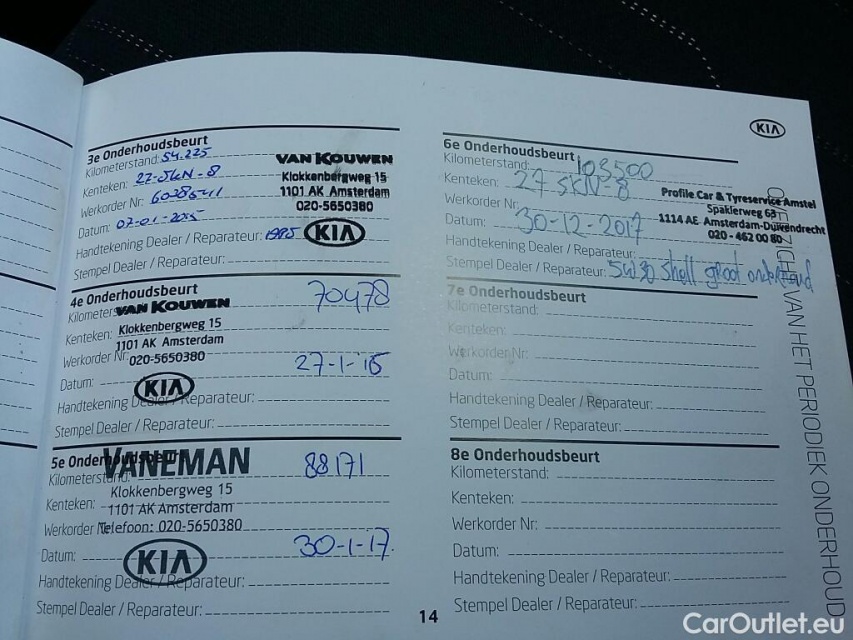 KIA
3e Onderhoudsbeurt
Kilometerstand: 54.225
Kenteken: 27-SKN-8
Werkorder Nr:
Datum: 07-01-2015
Handtekening Dealer / Reparateur:
Stempel Dealer / Reparateur:
VAN KOUWEN
Klokkenbergweg 15
1101 AK Amsterdam
020-5650380
KIA
4e Onderhoudsbeurt
Kilometerstand: 70478
Kenteken:
Werkorder Nr:
Datum: 27-1-16
Handtekening Dealer / Reparateur:
Stempel Dealer / Reparateur:
VAN KOUWEN
Klokkenbergweg 15
1101 AK Amsterdam
020-5650380
KIA
5e Onderhoudsbeurt
Kilometerstand: 88171
Kenteken:
Werkorder Nr:
Datum: 30-1-17
Handtekening Dealer / Reparateur:
Stempel Dealer / Reparateur:
VANEMAN
Klokkenbergweg 15
1101 AK Amsterdam
Telefoon: 020-5650380
KIA
6e Onderhoudsbeurt
Kilometerstand: 103500
Kenteken: 27 SKN-8
Werkorder Nr:
Datum: 30-12-2017
Handtekening Dealer / Reparateur:
Stempel Dealer / Reparateur: 5W30 Shell groot onderhoud
Profile Car & Tyreservice Amstel
Spaklerweg 63
1114 AE Amsterdam-Duivendrecht
020 - 462 00 80
7e Onderhoudsbeurt
Kilometerstand:
Kenteken:
Werkorder Nr:
Datum:
Handtekening Dealer / Reparateur:
Stempel Dealer / Reparateur:
8e Onderhoudsbeurt
Kilometerstand:
Kenteken:
Werkorder Nr:
Datum:
Handtekening Dealer / Reparateur:
Stempel Dealer / Reparateur:
VAN HET PERIODIEK ONDERHOUD
14
CarOutlet.eu